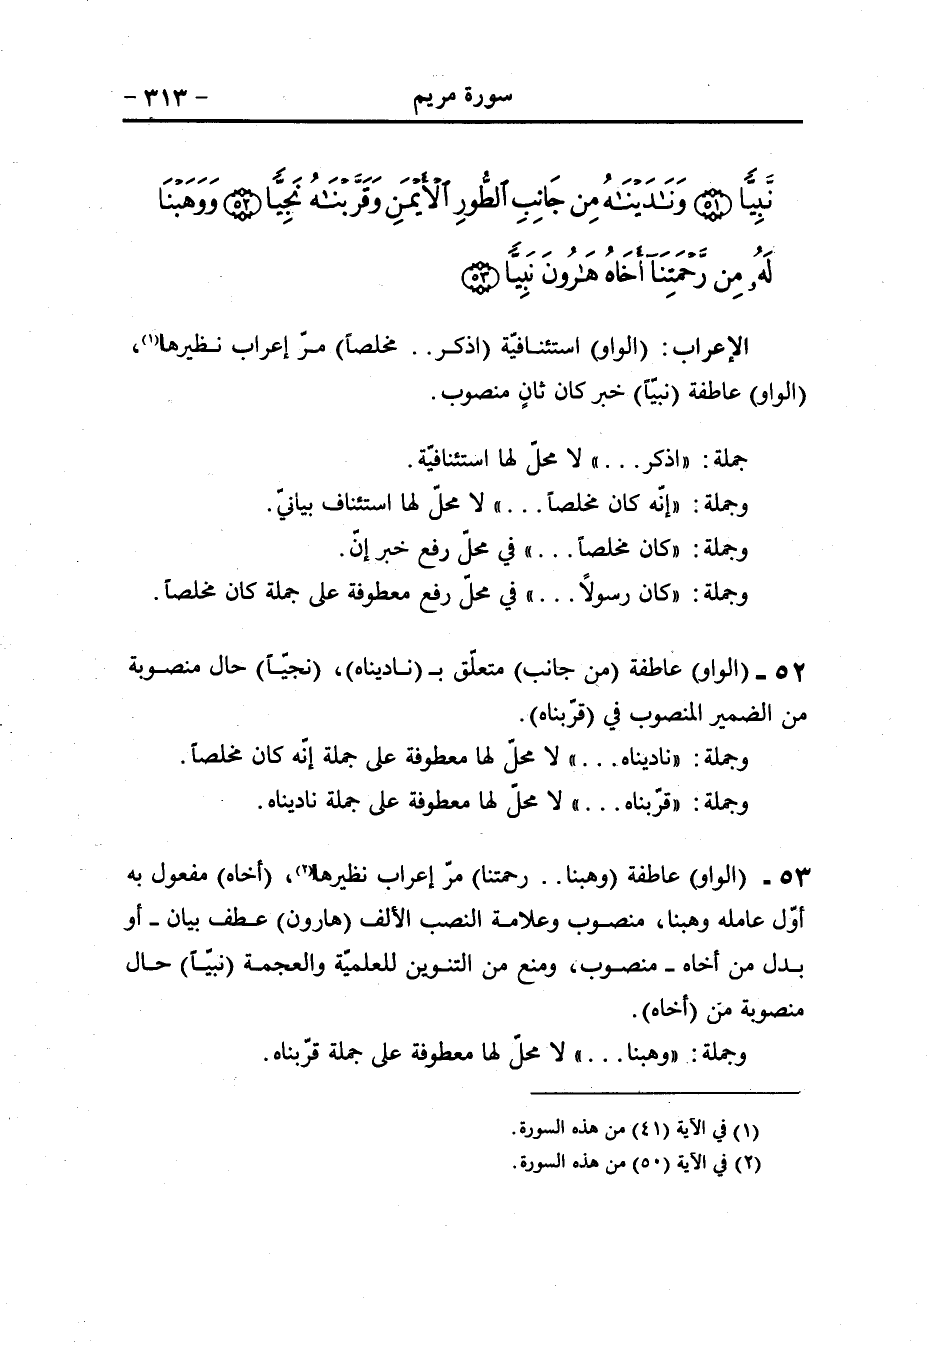 سورة مريم - ٣١٣ -
نَّبِيًّا ﴿٥١﴾ وَنَٰدَيْنَٰهُ مِن جَانِبِ ٱلطُّورِ ٱلْأَيْمَنِ وَقَرَّبْنَٰهُ نَجِيًّا ﴿٥٢﴾ وَوَهَبْنَا
لَهُۥ مِن رَّحْمَتِنَآ أَخَاهُ هَٰرُونَ نَبِيًّا ﴿٥٣﴾
الإعراب: (الواو) استئنافيّة (اذكر.. مخلصاً) مرّ إعراب نظيرها(١)،
(الواو) عاطفة (نبيّاً) خبر كان ثانٍ منصوب.
جملة: «اذكر...» لا محلّ لها استئنافيّة.
وجملة: «إنّه كان مخلصاً...» لا محلّ لها استئناف بيانيّ.
وجملة: «كان مخلصاً...» في محلّ رفع خبر إنّ.
وجملة: «كان رسولًا...» في محلّ رفع معطوفة على جملة كان مخلصاً.
٥٢ ـ (الواو) عاطفة (من جانب) متعلّق بـ (ناديناه)، (نجيّاً) حال منصوبة
من الضمير المنصوب في (قرّبناه).
وجملة: «ناديناه...» لا محلّ لها معطوفة على جملة إنّه كان مخلصاً.
وجملة: «قرّبناه...» لا محلّ لها معطوفة على جملة ناديناه.
٥٣ ـ (الواو) عاطفة (وهبنا.. رحمتنا) مرّ إعراب نظيرها(٢)، (أخاه) مفعول به
أوّل عامله وهبنا، منصوب وعلامة النصب الألف (هارون) عطف بيان ـ أو
بدل من أخاه ـ منصوب، ومنع من التنوين للعلميّة والعجمة (نبيّاً) حال
منصوبة من (أخاه).
وجملة: «وهبنا...» لا محلّ لها معطوفة على جملة قرّبناه.
(١) في الآية (٤١) من هذه السورة.
(٢) في الآية (٥٠) من هذه السورة.